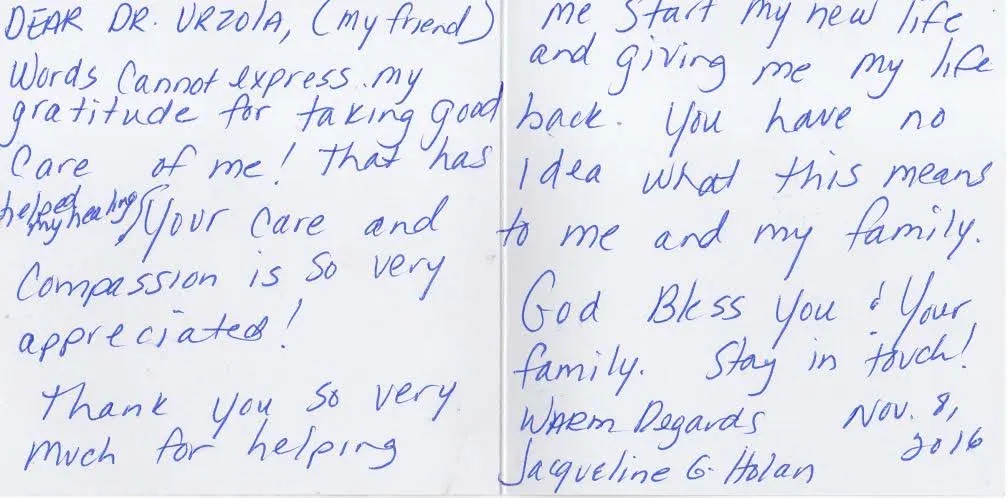 DEAR DR. URZOLA, (my friend)
Words Cannot express my
gratitude for taking good
Care of me! That has
helped
my healing! Your Care and
Compassion is so very
appreciated!
Thank you so very
much for helping
me start my new life
and giving me my life
back. You have no
Idea what this means
to me and my family.
God Bless You & Your
family. Stay in touch!
WARM Regards Nov. 8,
2016
Jacqueline G. Holan